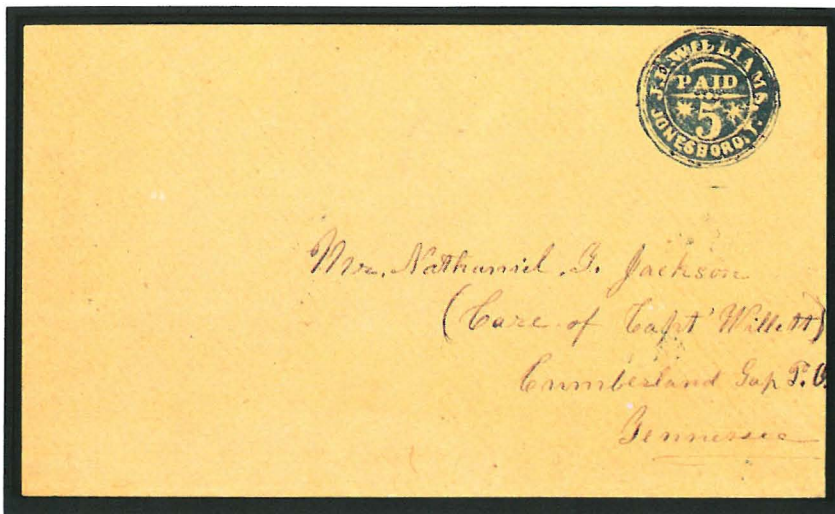 J.E. WILLIAMS
PAID
5
JONESBORO, T.
Mr. Nathaniel. G. Jackson
(Care of Capt' Willett)
Cumberland Gap P. O.
Tennessee